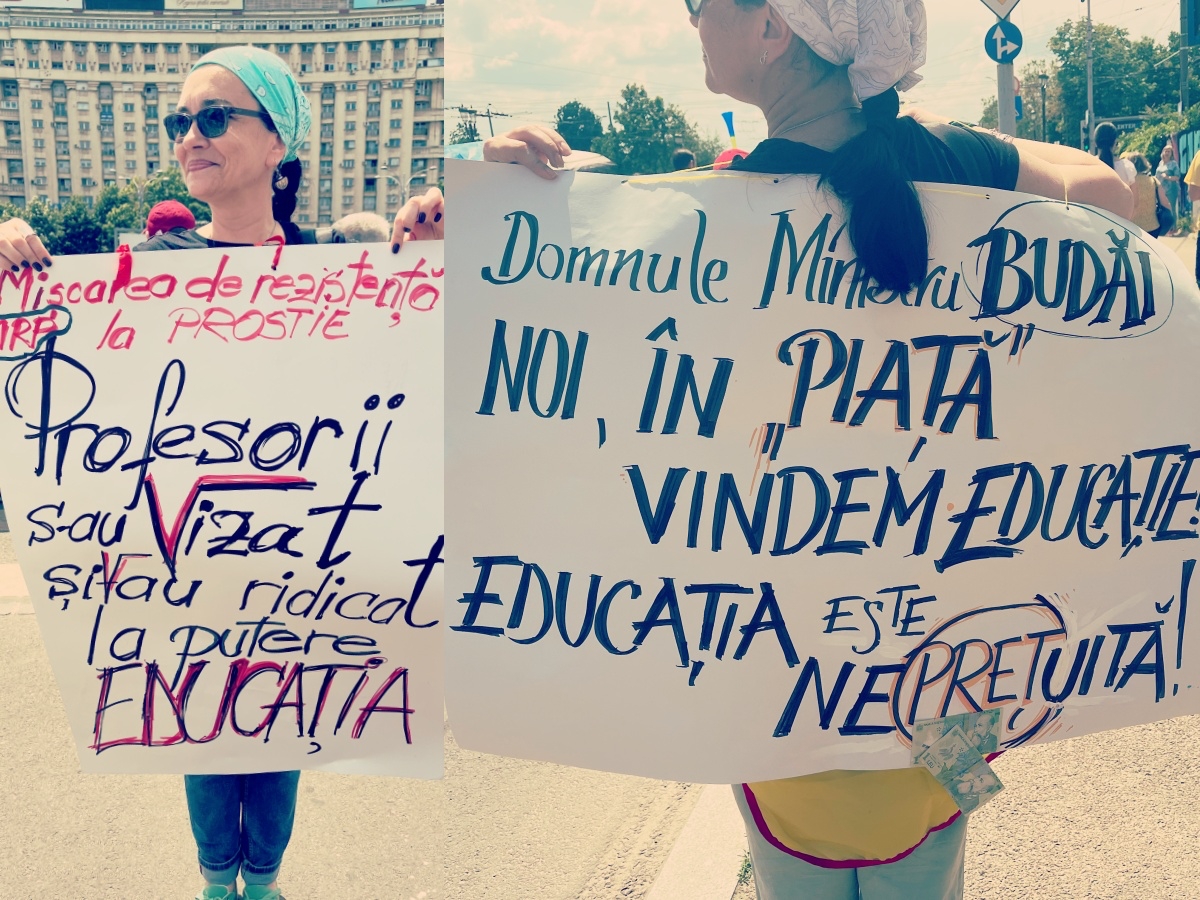 Mișcarea de rezistență
MRP la PROSTIE
Profesorii
s-au Vizat
și v-au ridicat
la putere
EDUCAȚIA
Domnule Ministru BUDĂI
NOI, ÎN „PIAȚĂ”
VINDEM EDUCAȚIE!
EDUCAȚIA ESTE
NEPREȚUITĂ!